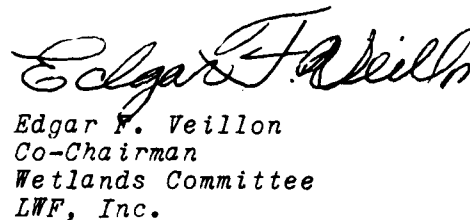 Edgar F. Veillon
Edgar F. Veillon
Co-Chairman
Wetlands Committee
LWF, Inc.